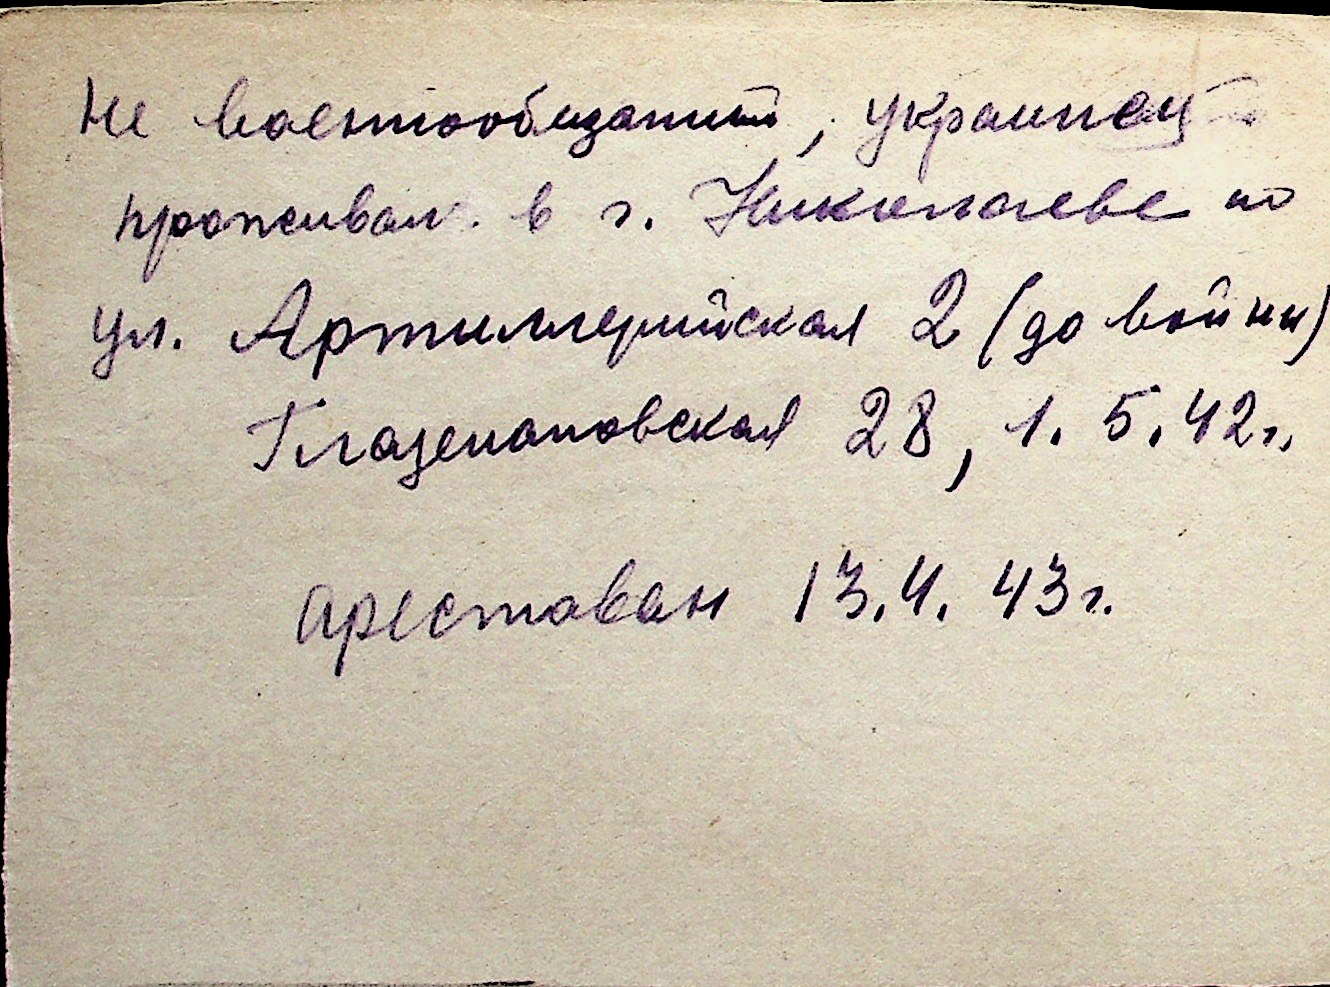 Не военнообязанный, украинец
проживал в г. Николаеве по
ул. Артиллерийская 2 (до войны)
Глазенаповская 28, 1.5.42г.,
арестован 13.4.43г.